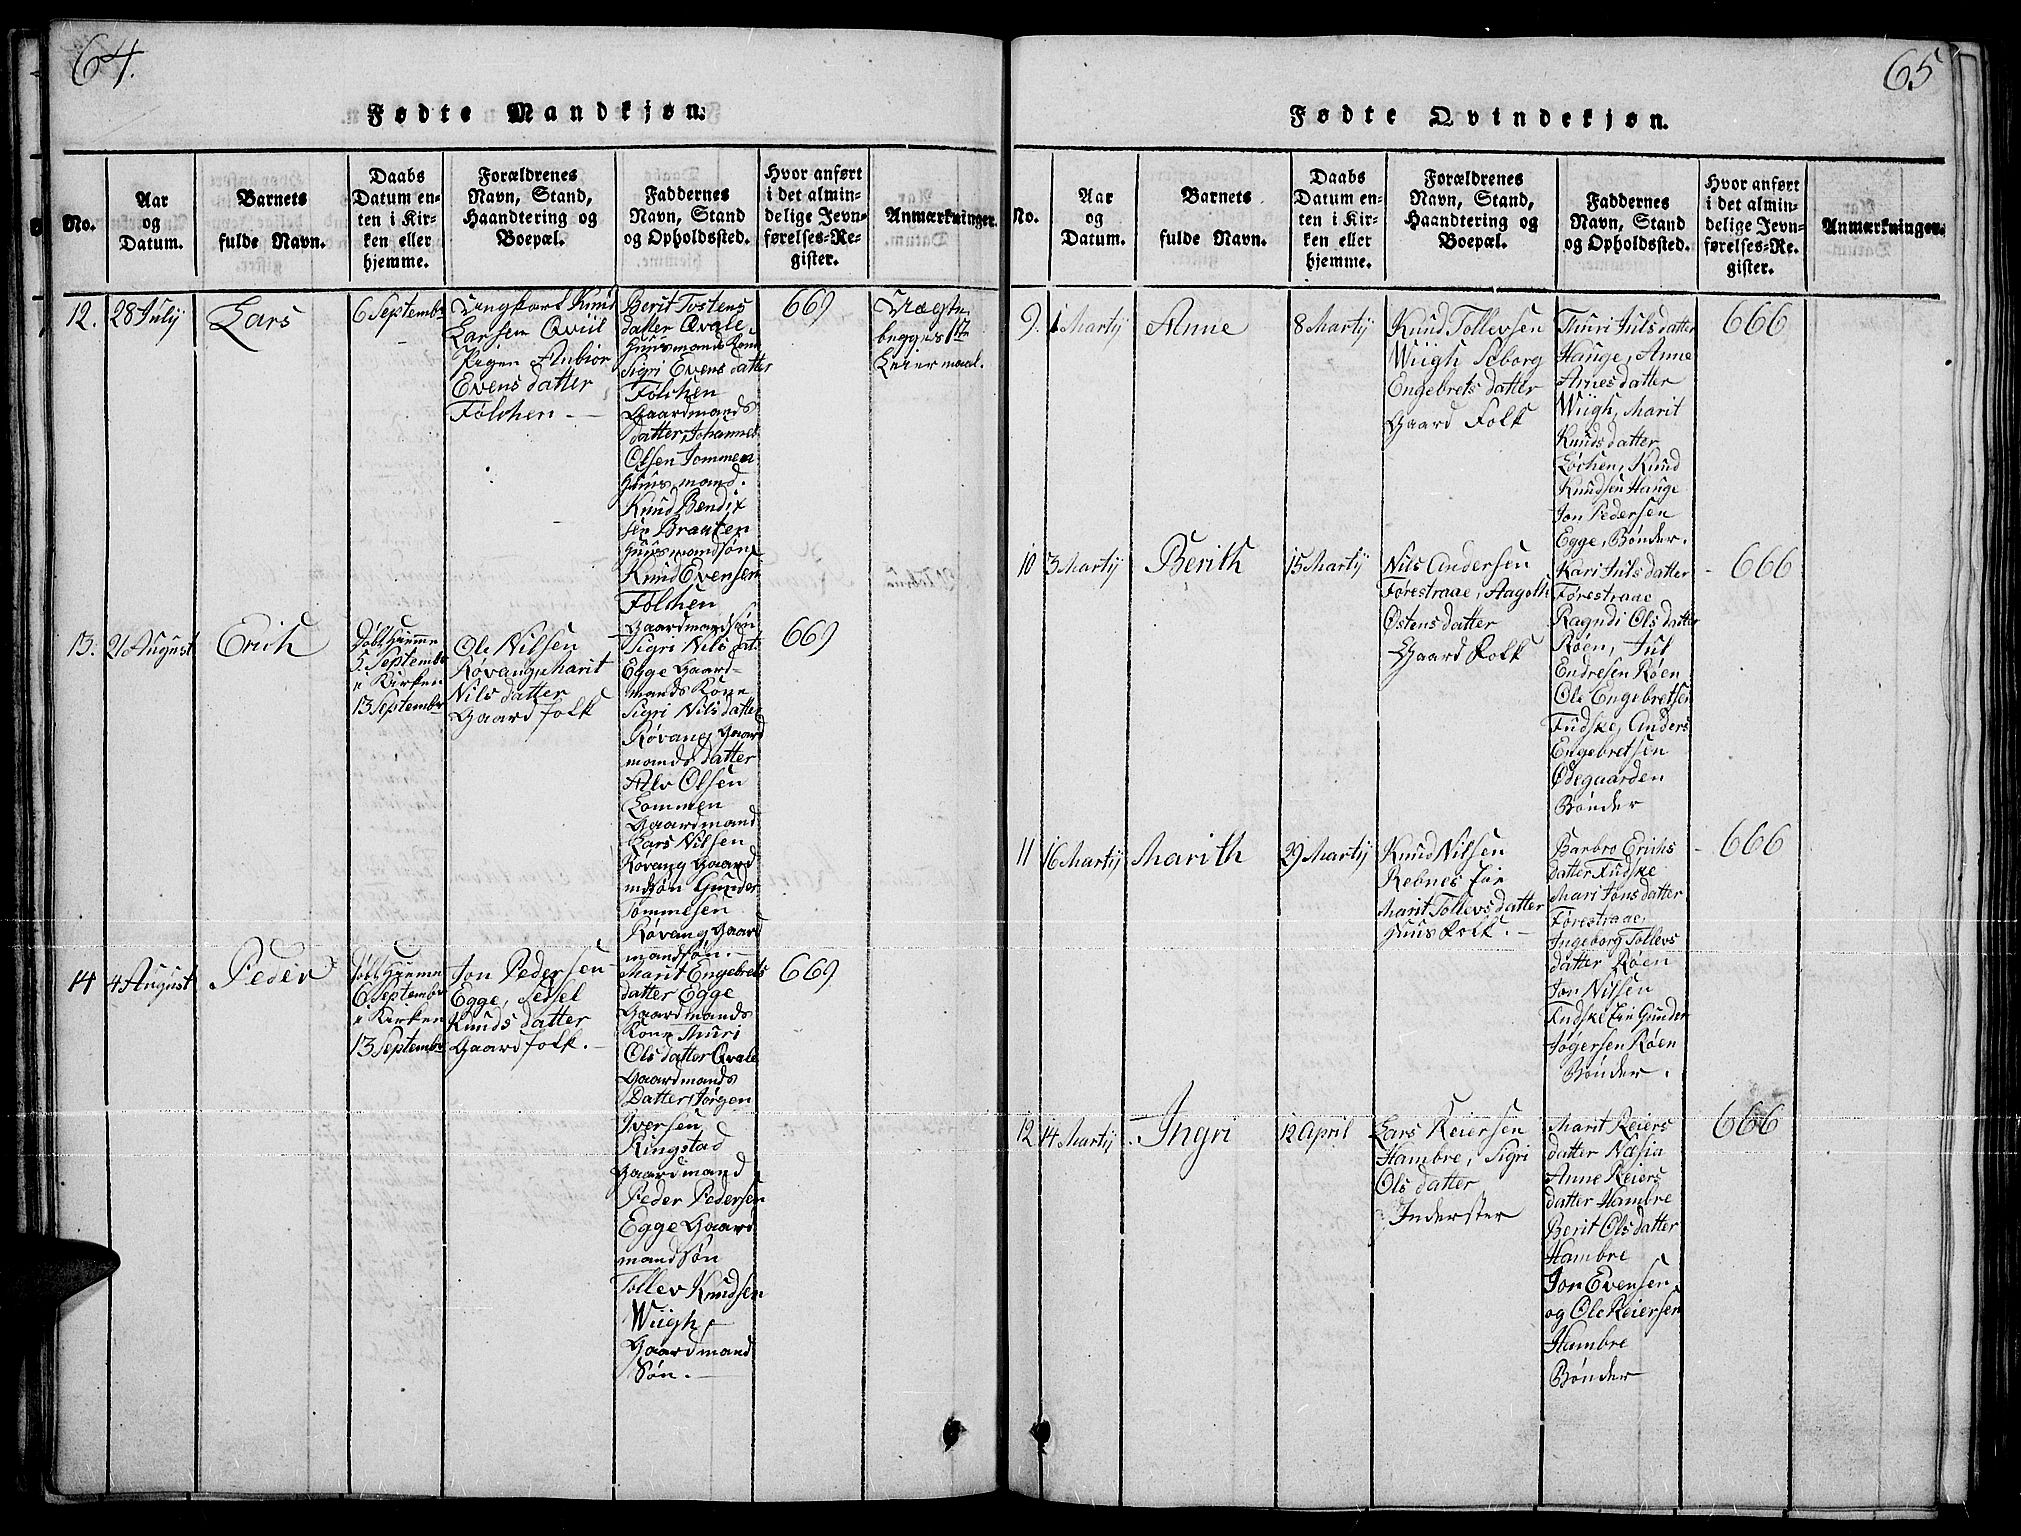 64.
Fødte Mandkjøn.
No.
Aar
og
Datum.
Barnets
fulde Navn.
Daabs
Datum en-
ten i Kir-
ken eller
hjemme.
Forældrenes
Navn, Stand,
Haandtering og
Boepæl.
Faddernes
Navn, Stand
og Opholdssted.
Hvor anført
i det almin-
delige Jevn-
førelses-Re-
gister.
Anmærkninger.
12.
28 July
Lars
6 Septembr
Ungkarl Knud
Larsen Qviil
Pigen Anbiør
Evens datter
Følchen
Berit Tostens
datter Qvale
Huusmands Kone
Sigri Evens datter
Følchen
Gaardmands
datter, Johannes
Olsen Lommen
Huusmand.
Knud Bendix
sen Braaten
Huusmandsøn
Knud Evensen
Følchen
Gaardmandsøn
669
begges 1ste
Leiermaal.
13.
21 August
Erich
døbt Hiemme
5 Septembr
i Kirken
13 Septembr
Ole Nilsen
Røvang, Marit
Nils datter
Gaardfolk
Sigri Nils dat:
Egge Gaard-
mands Kone
Sigri Nils datter
Røvang Gaard
mands datter
Alv Olsen
Lommen
Gaardmand
Lars Nilsen
Røvang Gaard
mdsøn Gunder
Tommesen
Røvang Gaard
mandsøn.
669
14
4 August
Peder
døbt Hiemme
6 Septembr
i Kirken
13 Septembr
Jon Pedersen
Egge, Sidsel
Knuds datter
Gaardfolk.
Marit Engebrets
datter Egge
Gaardmands
Kone Thuri
Ols datter Qvale
Gaardmands
Datter, Jørgen
Iversen
Ringstad
Gaardmand
Peder Pedersen
Egge Gaard
mandsøn
Tollev Knudsen
Wiigh
Gaardmand
Søn.
669
65
Fødte Qvindekjøn.
No.
Aar
og
Datum.
Barnets
fulde Navn.
Daabs
Datum en-
ten i Kir-
ken eller
hjemme.
Forældrenes
Navn, Stand,
Haandtering og
Boepæl.
Faddernes
Navn, Stand
og Opholdssted.
Hvor anført
i det almin-
delige Jevn-
førelses-Re-
gister.
Anmærkninger.
9.
1 Martij
Anne
8 Martij
Knud Tollevsen
Wiigh Siborg
Engebrets datter
Gaard Folk
Thuri Juls datter
Hauge, Anne
Arnes datter
Wiigh, Marit
Knuds datter
Løchen, Knud
Knudsen Hauge
Jon Pedersen
Egge, Bønder.
666
10
3 Martij
Berith
15 Martij
Nils Andersen
Førestraae, Aagoth
Østens datter
Gaard Folk
Kari Juls datter
Førestraae
Ragndi Ols datter
Røen, Jul
Endresen Røen
Ole Engebretsen
Fudske, Anders
Engebretsen
Ødegaarden
Bønder
666
11
16 Martij
Marith
29 Martij
Knud Nilsen
Rebnes Eie
Marit Tollevs datter
Huusfolk.
Barbro Erichs
datter Fudske
Mari Jons datter
Førestraae,
Ingeborg Tollevs
datter Røen
Jon Nilsen
Fudske Eie Gunder
Jøgersen Røen
Bønder.
666
12
14 Martij
Ingri
12 April
Lars Reiersen
Hambre, Sigri
Ols datter
Inderster
Marit Reiers
datter Næsia
Anne Reiers
datter Hambre
Berit Ols datter
Hambre
Jon Evensen
og Ole Reiersen
Hambre
Bønder
666